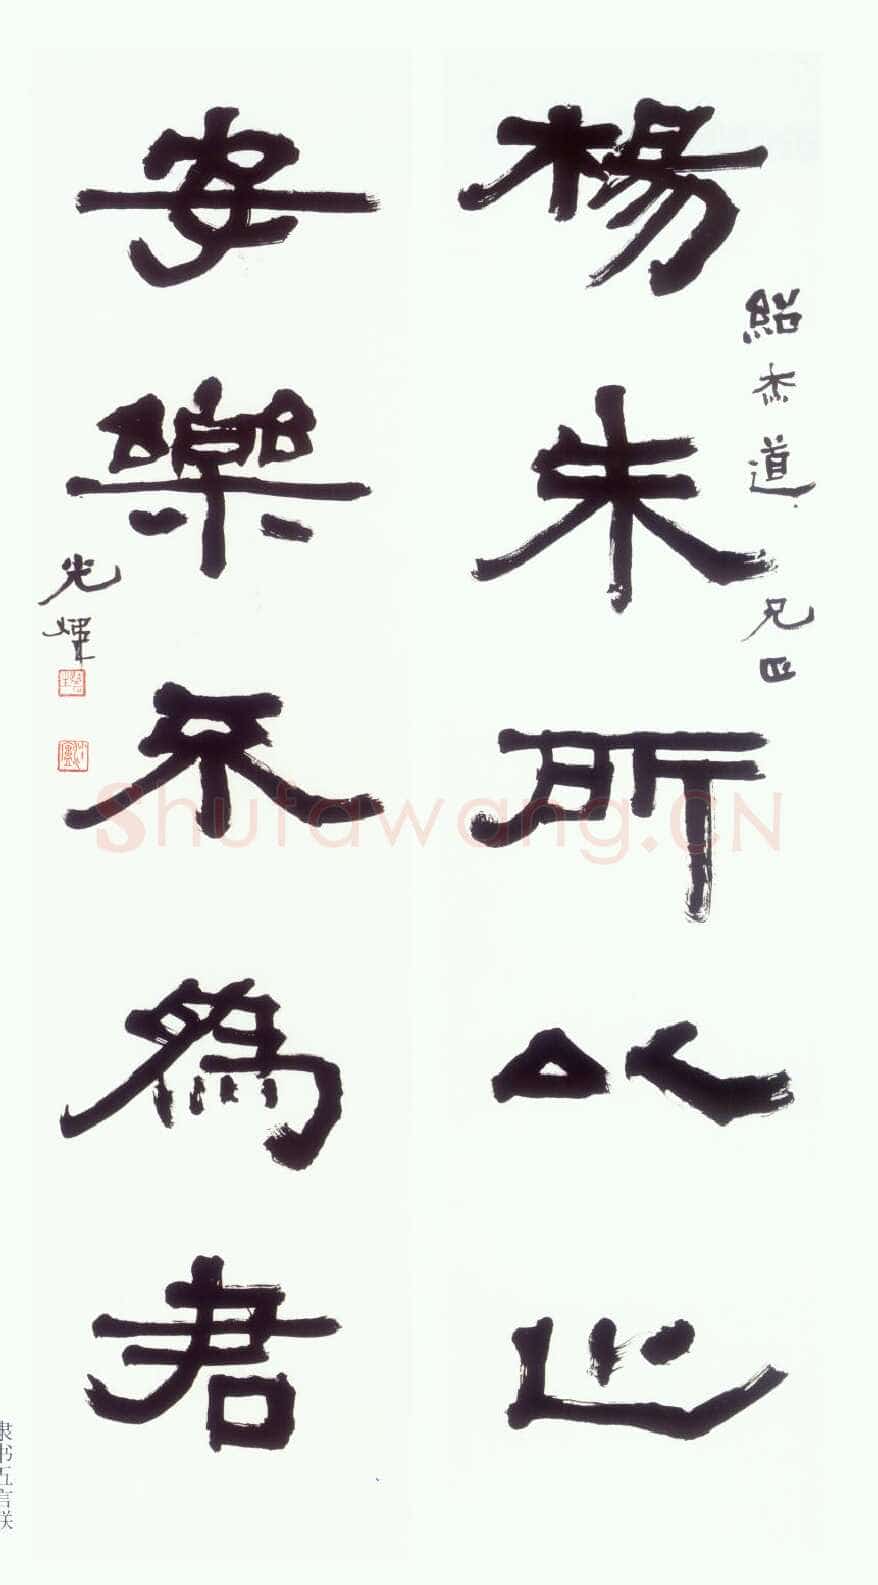 楊朱所以之
紹杰道兄正
安樂不為君
光煒
隶书五言联
Shufawang.CN